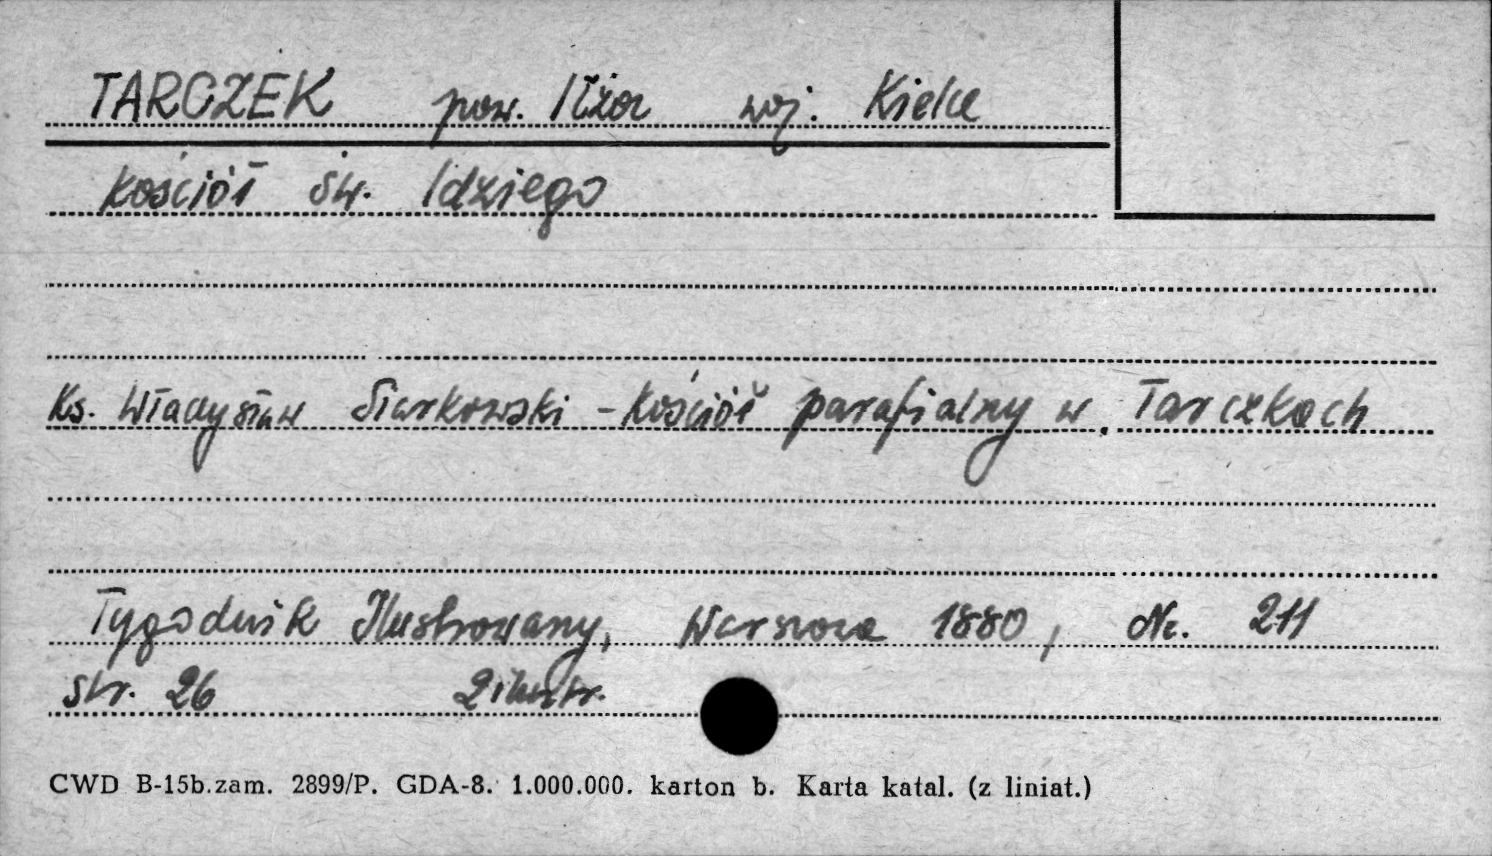 TARCZEK pow. Iłża woj. Kielce
Kościół św. Idziego
Ks. Władysław Siarkowski - Kościół parafialny w Tarczkach
Tygodnik Ilustrowany, Warszawa 1880, Nr. 211
str. 26 2 ilustr.
CWD B-15b.zam. 2899/P. GDA-8. 1.000.000. karton b. Karta katal. (z liniat.)